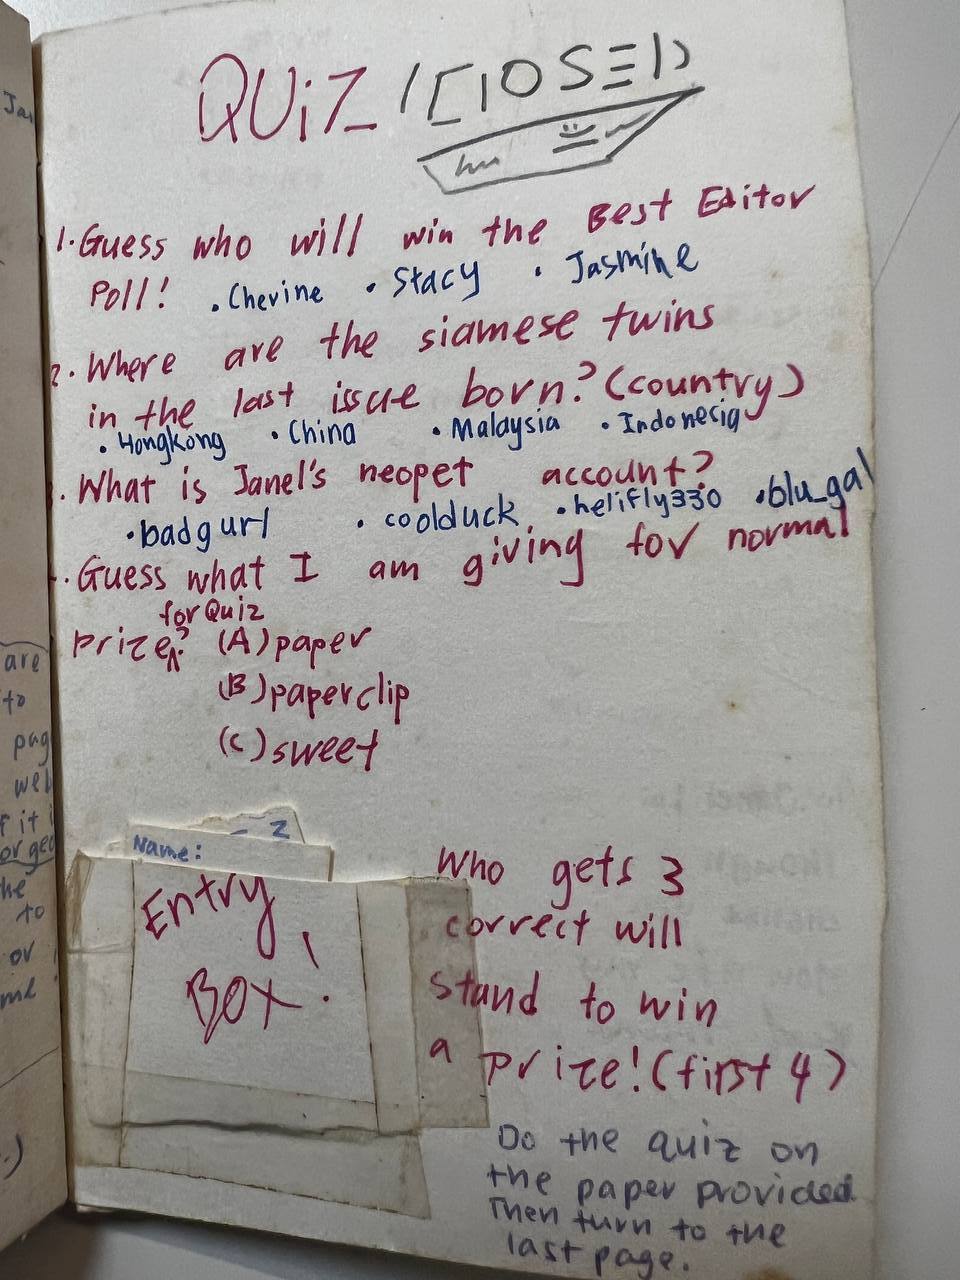 QUiZ CLOSED
1. Guess who will win the Best Editor
Poll! . Cherine . Stacy . Jasmine
2. Where are the siamese twins
in the last issue born? (country)
. Hongkong . China . Malaysia . Indonesia
. What is Janel's neopet account?
. badgurl . coolduck . helifly330 . blu_gal
. Guess what I am giving for normal
for Quiz
Prize? (A) paper
(B) paperclip
(C) sweet
Name:
Entry
BOX!
Who gets 3
correct will
stand to win
a prize! (first 4)
Do the quiz on
the paper provided
Then turn to the
last page.
are
to
pag
wel
it
he
to
or
me